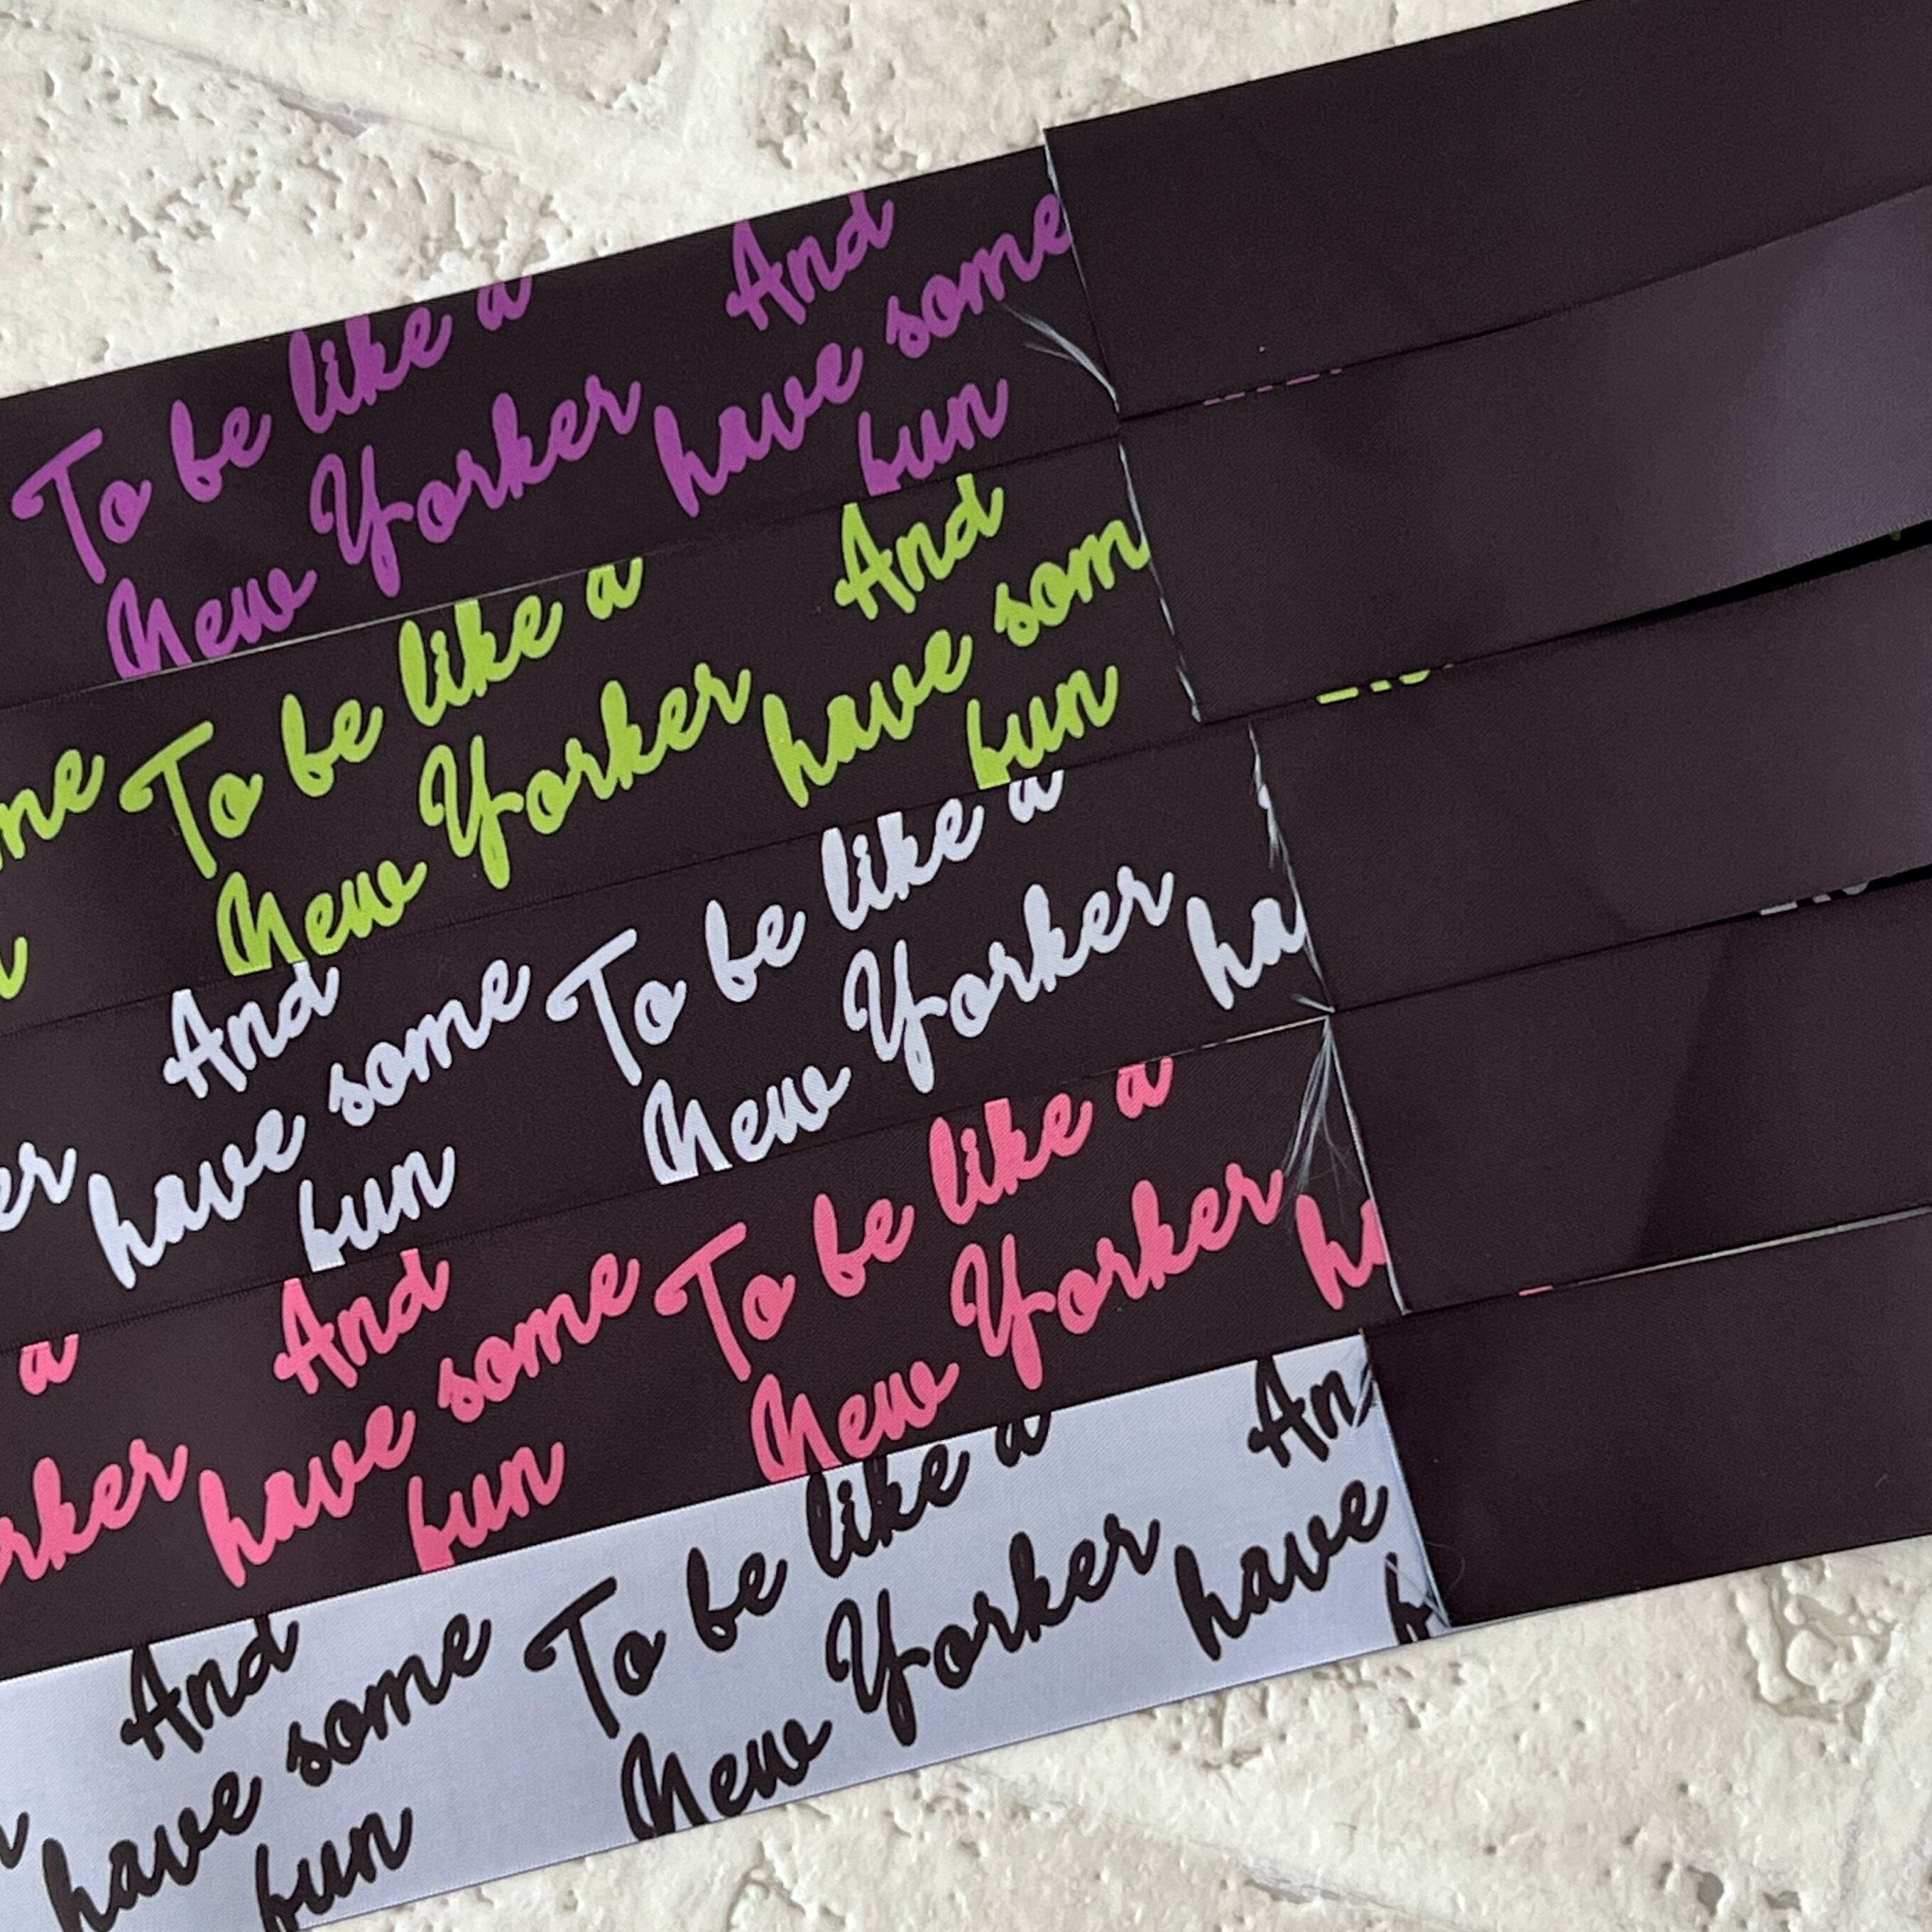 To be like a And
New Yorker have some
fun
me To be like a And
New Yorker have som
fun
And To be like a
er have some New Yorker ha
fun
a And To be like a
rker have some New Yorker h
fun
And To be like a An
have some New Yorker have
fun f